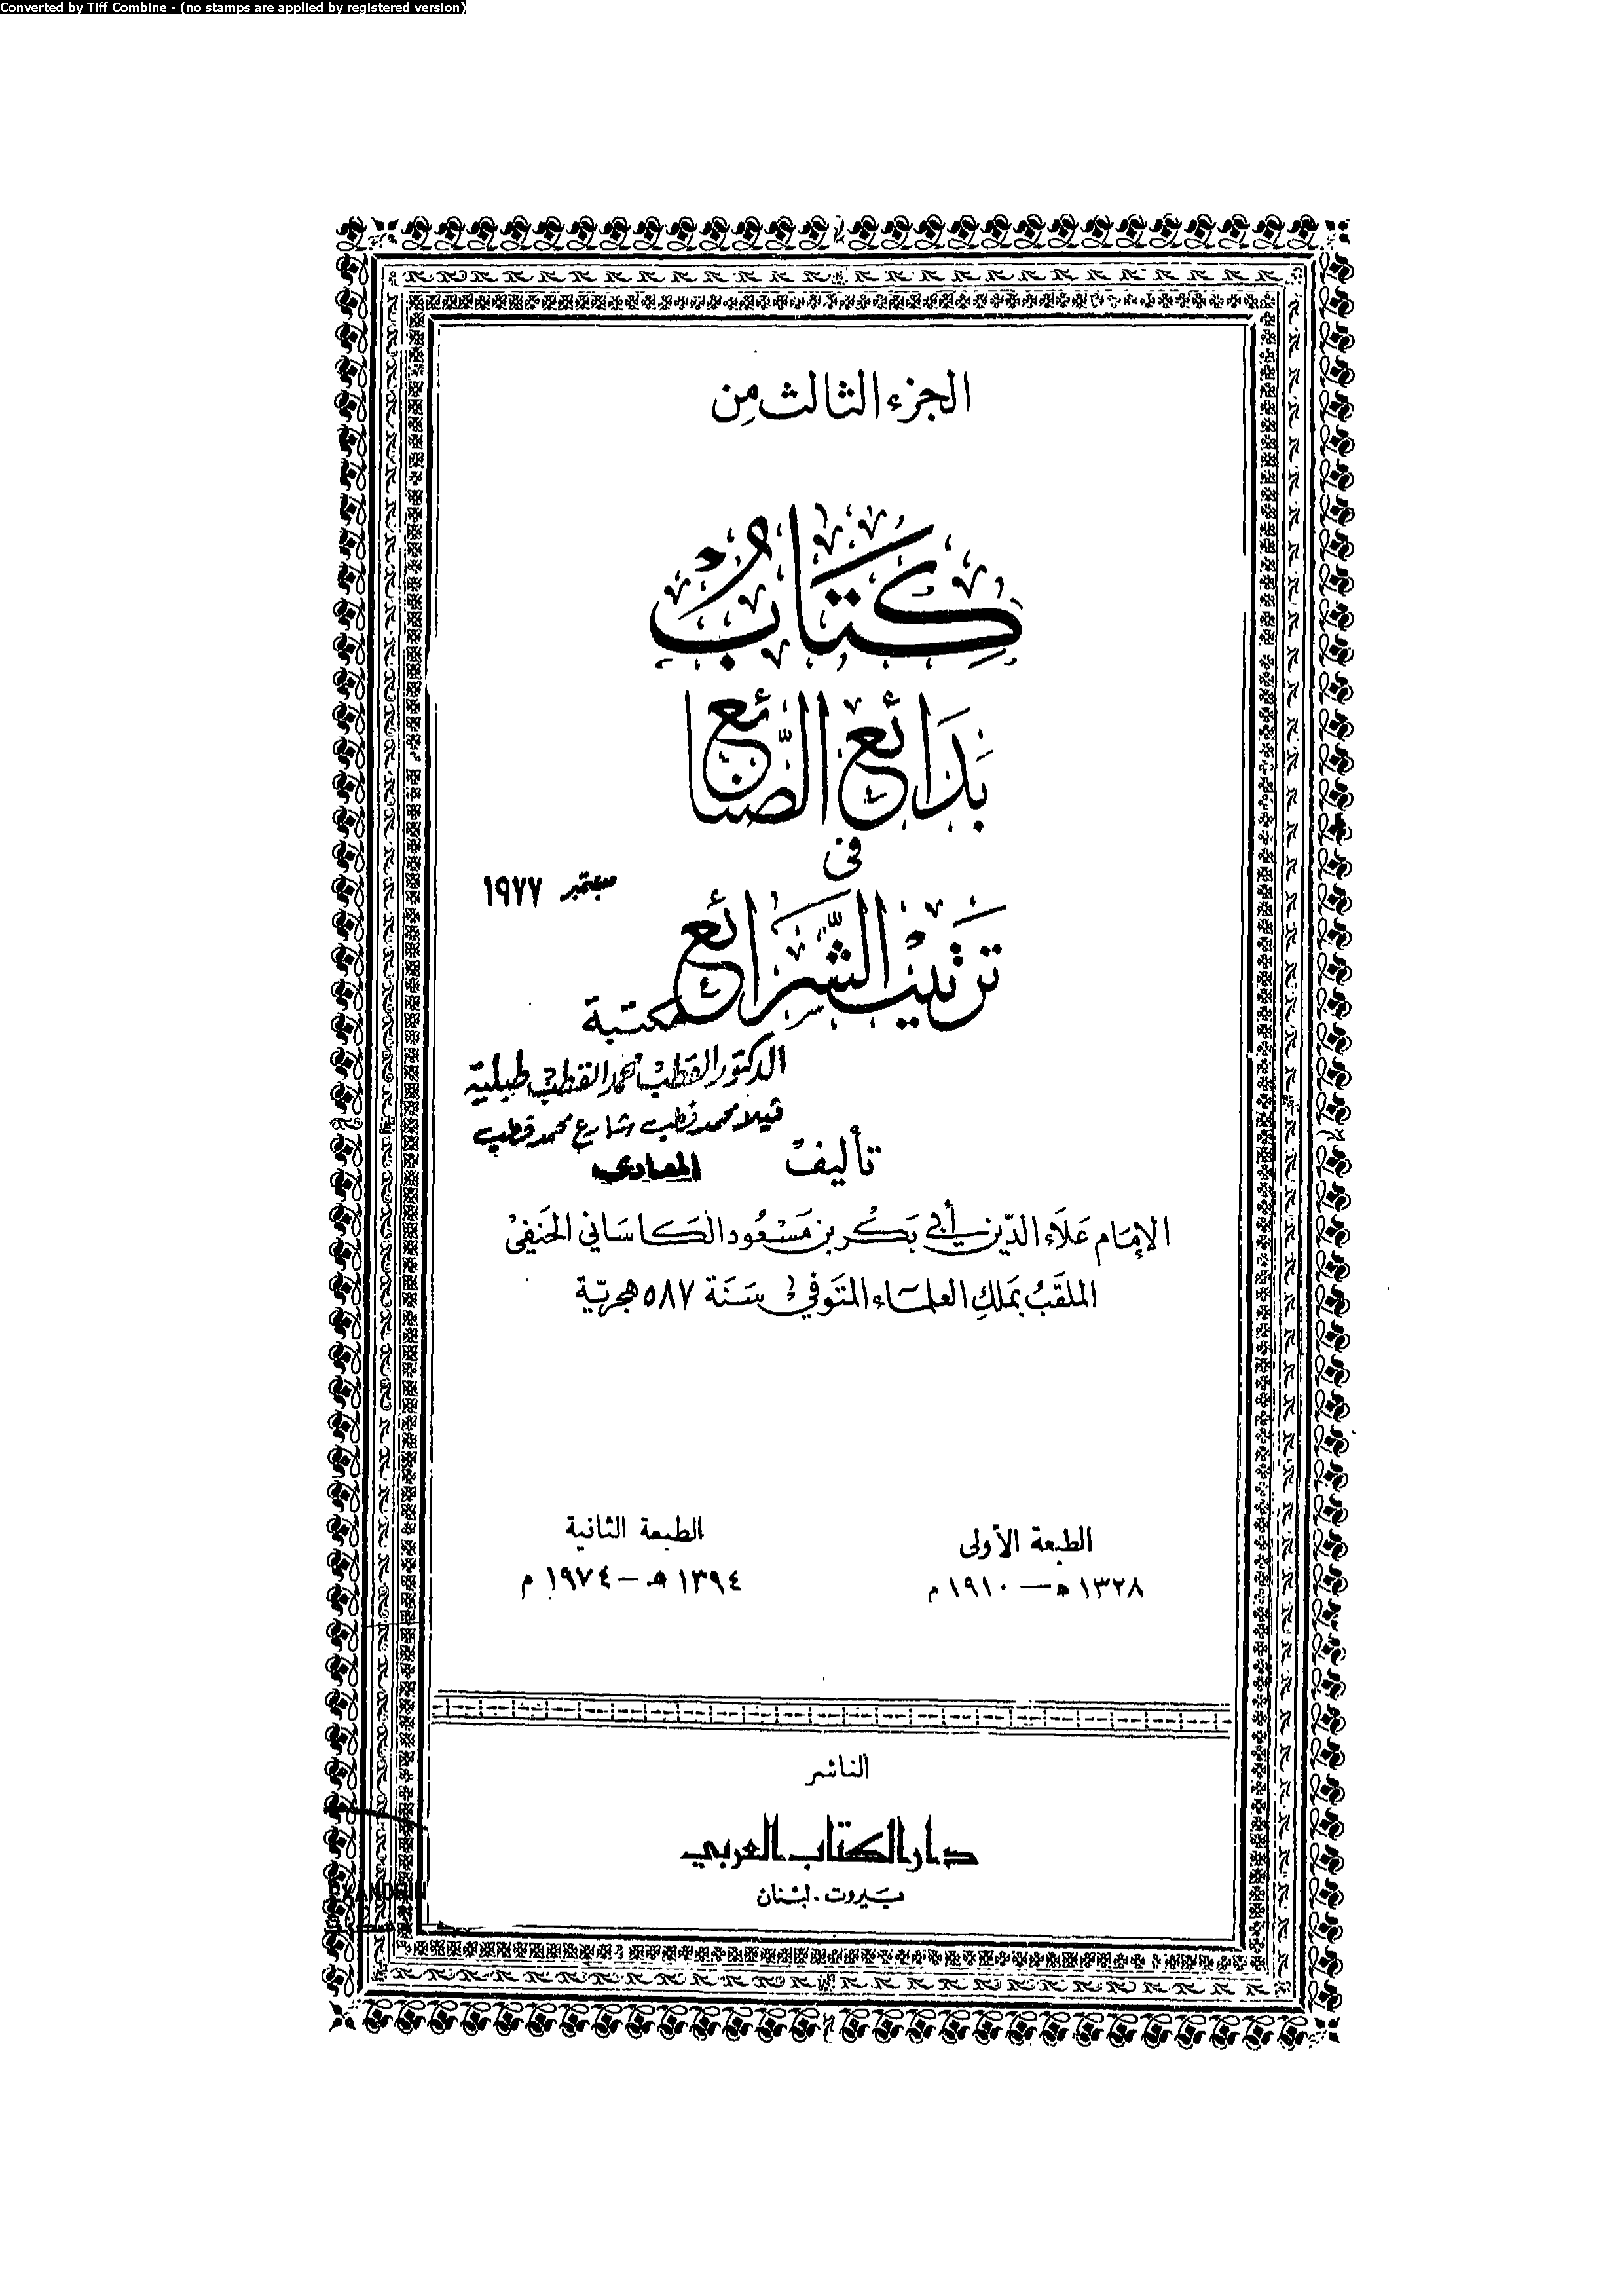 Converted by Tiff Combine - (no stamps are applied by registered version)
الجزء الثالث من
كتاب
بدائع الصنائع
فى
سبتمبر ١٩٧٧
ترتيب الشرائع
مكتبة
الدكتور القطب محمد القطب طبلية
فيلا محمد قطب شارع محمد قطب
المعادى
تأليف
الإمام عَلَاء الدّين أبي بَكْر بن مَسْعُود الكاسَاني الحَنفِيْ
الملقَبُ بمَلكِ العلماء المتَوفي سَنَة ٥٨٧ هجريّة
الطبعة الأولى
١٣٢٨ ه — ١٩١٠ م
الطبعة الثانية
١٣٩٤ ه — ١٩٧٤ م
الناشر
دار الكتاب العربي
بَيروت - لبْنان